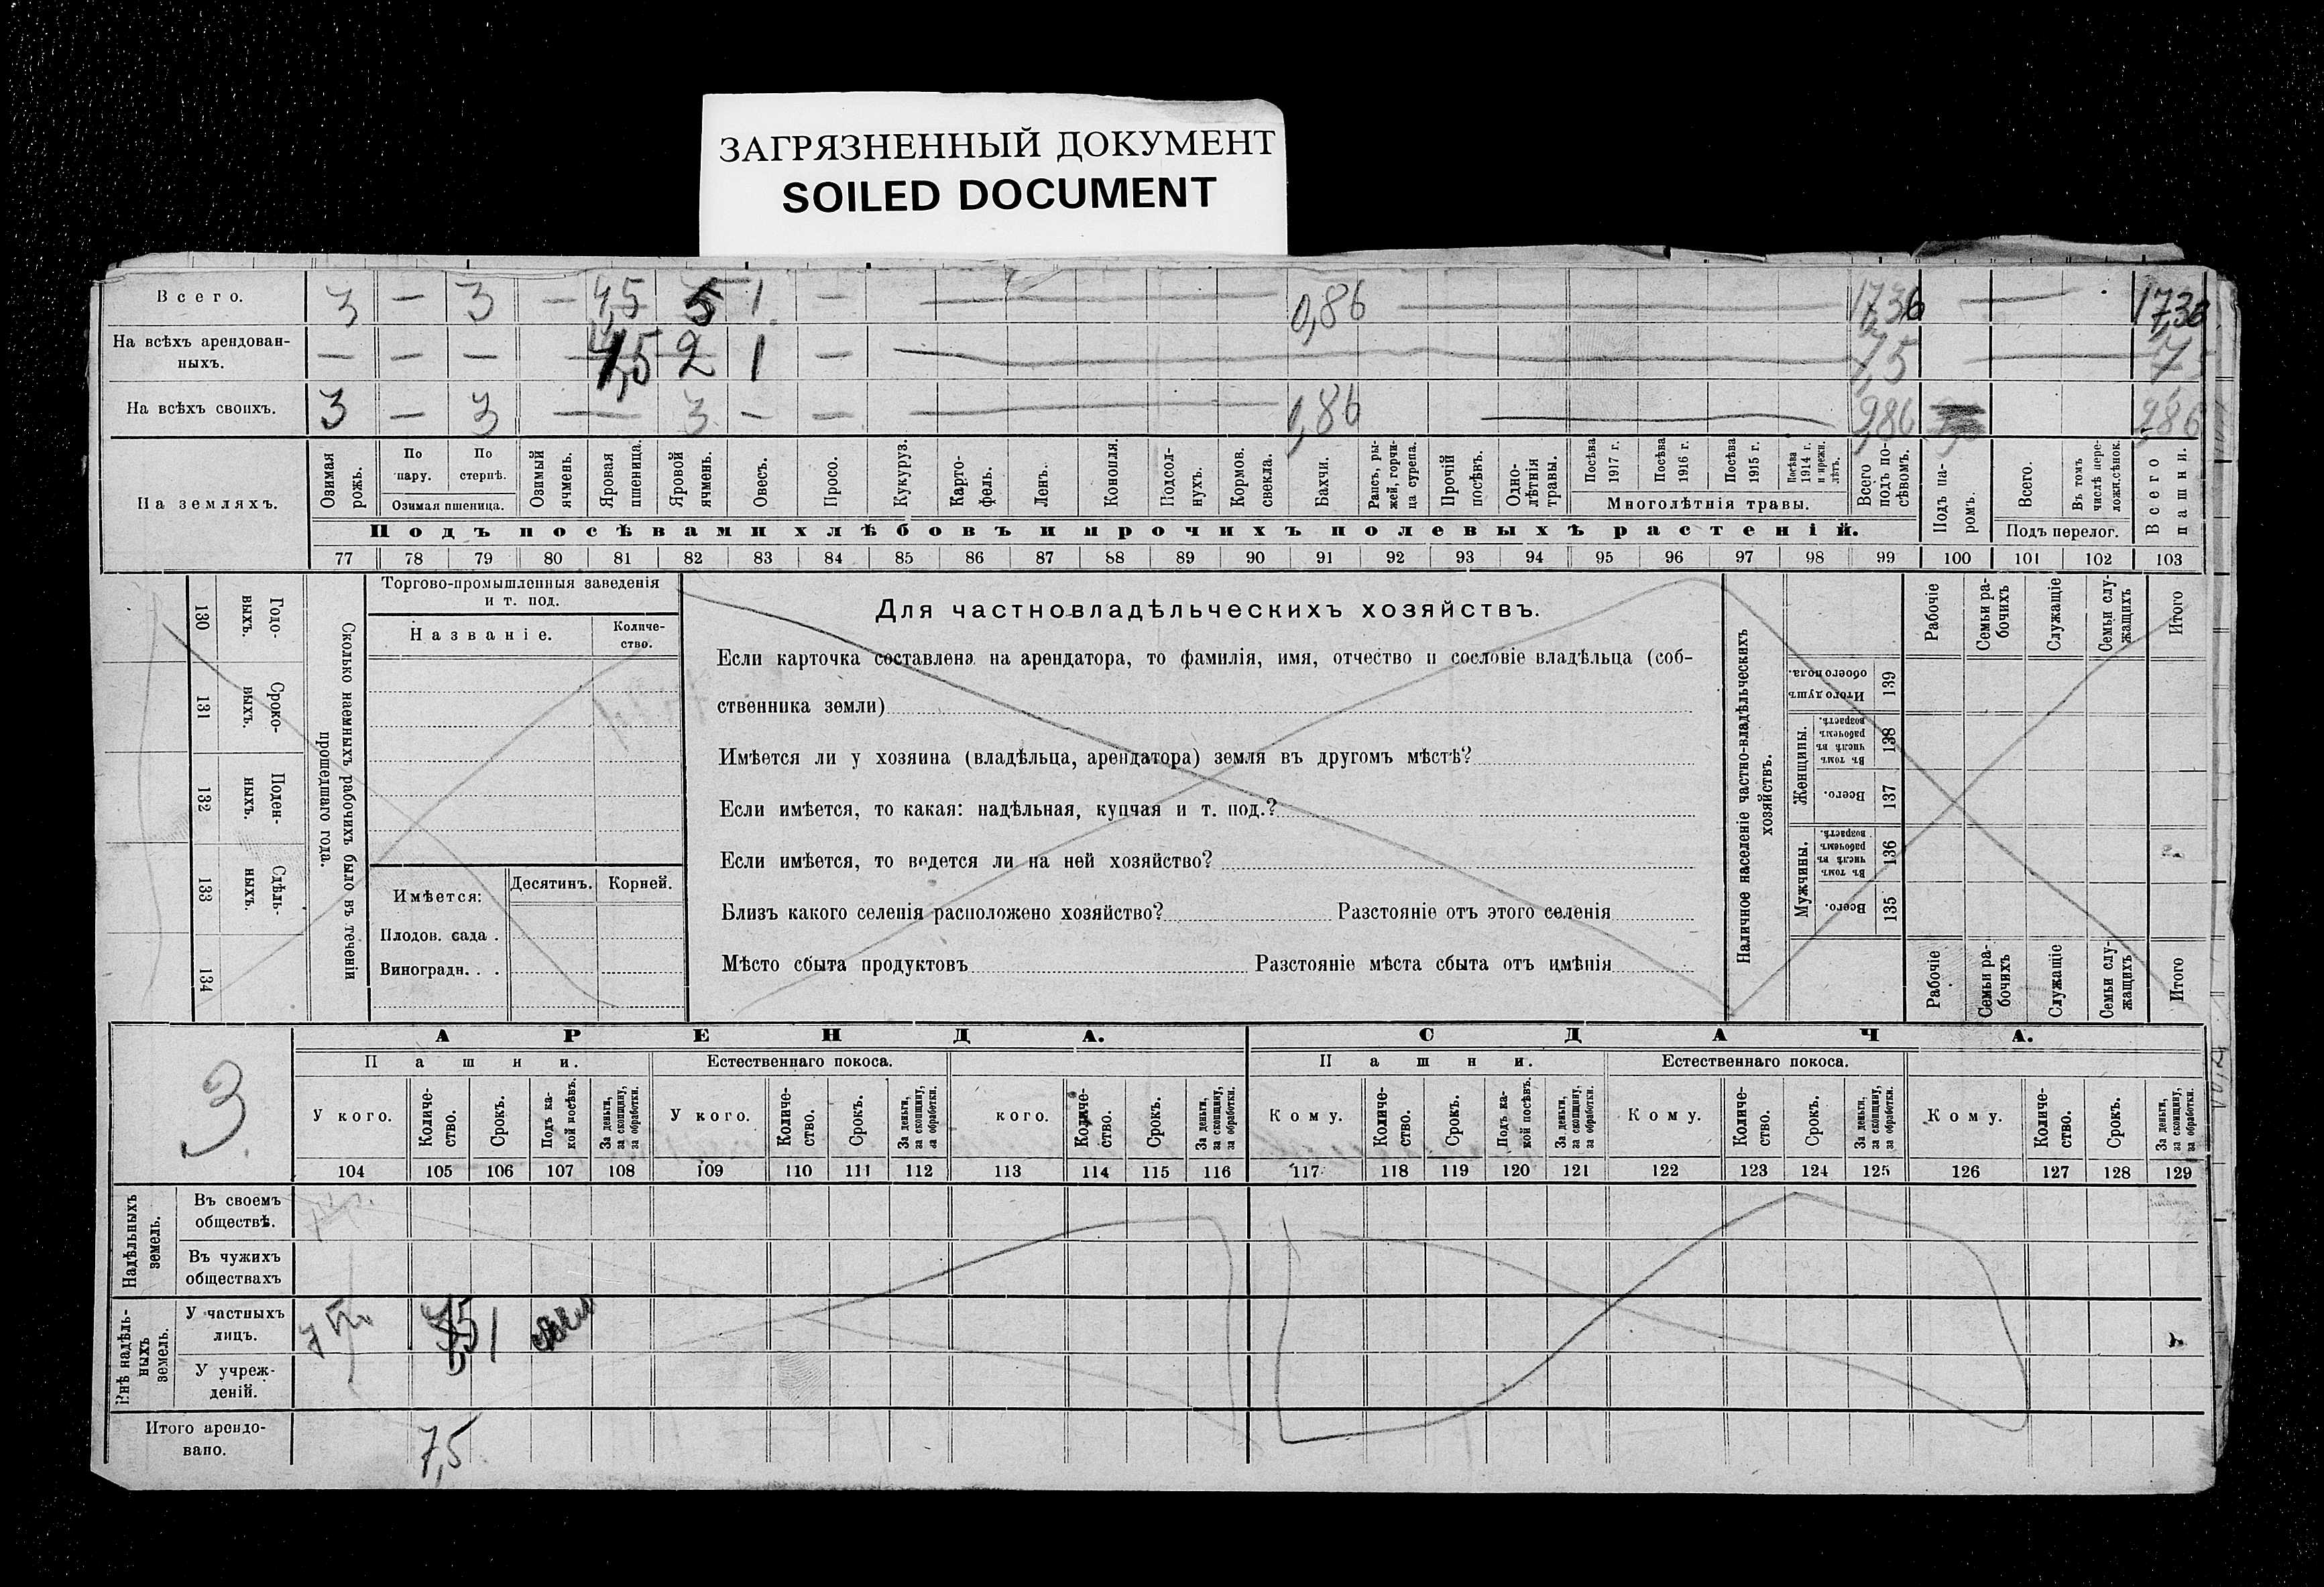 ЗАГРЯЗНЕННЫЙ ДОКУМЕНТ
SOILED DOCUMENT
Всего. 3 — 3 — 4,5 5 1 — 0,86 17,36 — 17,36
На всѣхъ арендован-
ныхъ. — — — 4,5 2 1 — 7,5 7
На всѣхъ своихъ. 3 — 3 — 3 — — 0,86 9,86 9,86
На земляхъ.
Озимая рожь.
По пару.
По стернѣ.
Озимая пшеница.
Озимый ячмень.
Яровая пшеница.
Яровой ячмень.
Овесъ.
Просо.
Кукуруз.
Карто-
фель.
Ленъ.
Конопля.
Подсол-
нухъ.
Кормов.
свекла.
Бахчи.
Рапсъ, ры-
жей, горчи-
ца сурепа.
Прочій
посѣвъ.
Одно-
лѣтнія
травы.
Посѣва 1917 г.
Посѣва 1916 г.
Посѣва 1915 г.
Посѣва 1914 г. и прежн. лѣтъ.
Многолѣтнія травы.
Всего
подъ по-
сѣвомъ.
Подъ па-
ромъ.
Всего.
Въ томъ
числѣ пере-
ложн.сѣнок.
Подъ перелог.
Всего
пашни.
Подъ посѣвами хлѣбовъ и прочихъ полевыхъ растеній.
77 78 79 80 81 82 83 84 85 86 87 88 89 90 91 92 93 94 95 96 97 98 99 100 101 102 103
130 Годо-
выхъ.
131 Сроко-
выхъ.
132 Поден-
ныхъ.
133 Сдѣль-
ныхъ.
134
Сколько наемныхъ рабочихъ было въ теченіи
прошедшаго года.
Торгово-промышленныя заведенія
и т. под.
Названіе.
Количе-
ство.
Имѣется:
Десятинъ.
Корней.
Плодов. сада .
Виноградн. . .
Для частновладѣльческихъ хозяйствъ.
Если карточка составлена на арендатора, то фамилія, имя, отчество и сословіе владѣльца (соб-
ственника земли)
Имѣется ли у хозяина (владѣльца, арендатора) земля въ другомъ мѣстѣ?
Если имѣется, то какая: надѣльная, купчая и т. под.?
Если имѣется, то ведется ли на ней хозяйство?
Близъ какого селенія расположено хозяйство? Разстояніе отъ этого селенія
Мѣсто сбыта продуктовъ Разстояніе мѣста сбыта отъ имѣнія
Наличное населеніе частно-владѣльческихъ
хозяйствъ.
Рабочіе
Семьи ра-
бочихъ
Служащіе
Семьи слу-
жащихъ
Итого
Итого душъ обоего пола. 139
Женщины.
Въ томъ числѣ въ рабочемъ возрастѣ. 138
Всего. 137
Мужчины.
Въ томъ числѣ въ рабочемъ возрастѣ. 136
Всего. 135
Рабочіе
Семьи ра-
бочихъ
Служащіе
Семьи слу-
жащихъ
Итого
3
АРЕНДА.
СДАЧА.
Пашни.
Естественнаго покоса.
Пашни.
Естественнаго покоса.
У кого.
Количе-
ство.
Срокъ.
Подъ ка-
кой посѣвъ.
За деньги,
за скопщину,
за обработки.
У кого.
Количе-
ство.
Срокъ.
За деньги,
за скопщину,
за обработки.
кого.
Количе-
ство.
Срокъ.
За деньги,
за скопщину,
за обработки.
Кому.
Количе-
ство.
Срокъ.
Подъ ка-
кой посѣвъ.
За деньги,
за скопщину,
за обработки.
Кому.
Количе-
ство.
Срокъ.
За деньги,
за скопщину,
за обработки.
Кому.
Количе-
ство.
Срокъ.
За деньги,
за скопщину,
за обработки.
104 105 106 107 108 109 110 111 112 113 114 115 116 117 118 119 120 121 122 123 124 125 126 127 128 129
Надѣльныхъ
земель.
Въ своемъ
обществѣ.
Въ чужихъ
обществахъ
Внѣ надѣль-
ныхъ
земель.
У частныхъ
лицъ.
У учреж-
деній.
Итого арендо-
вано. 7,5